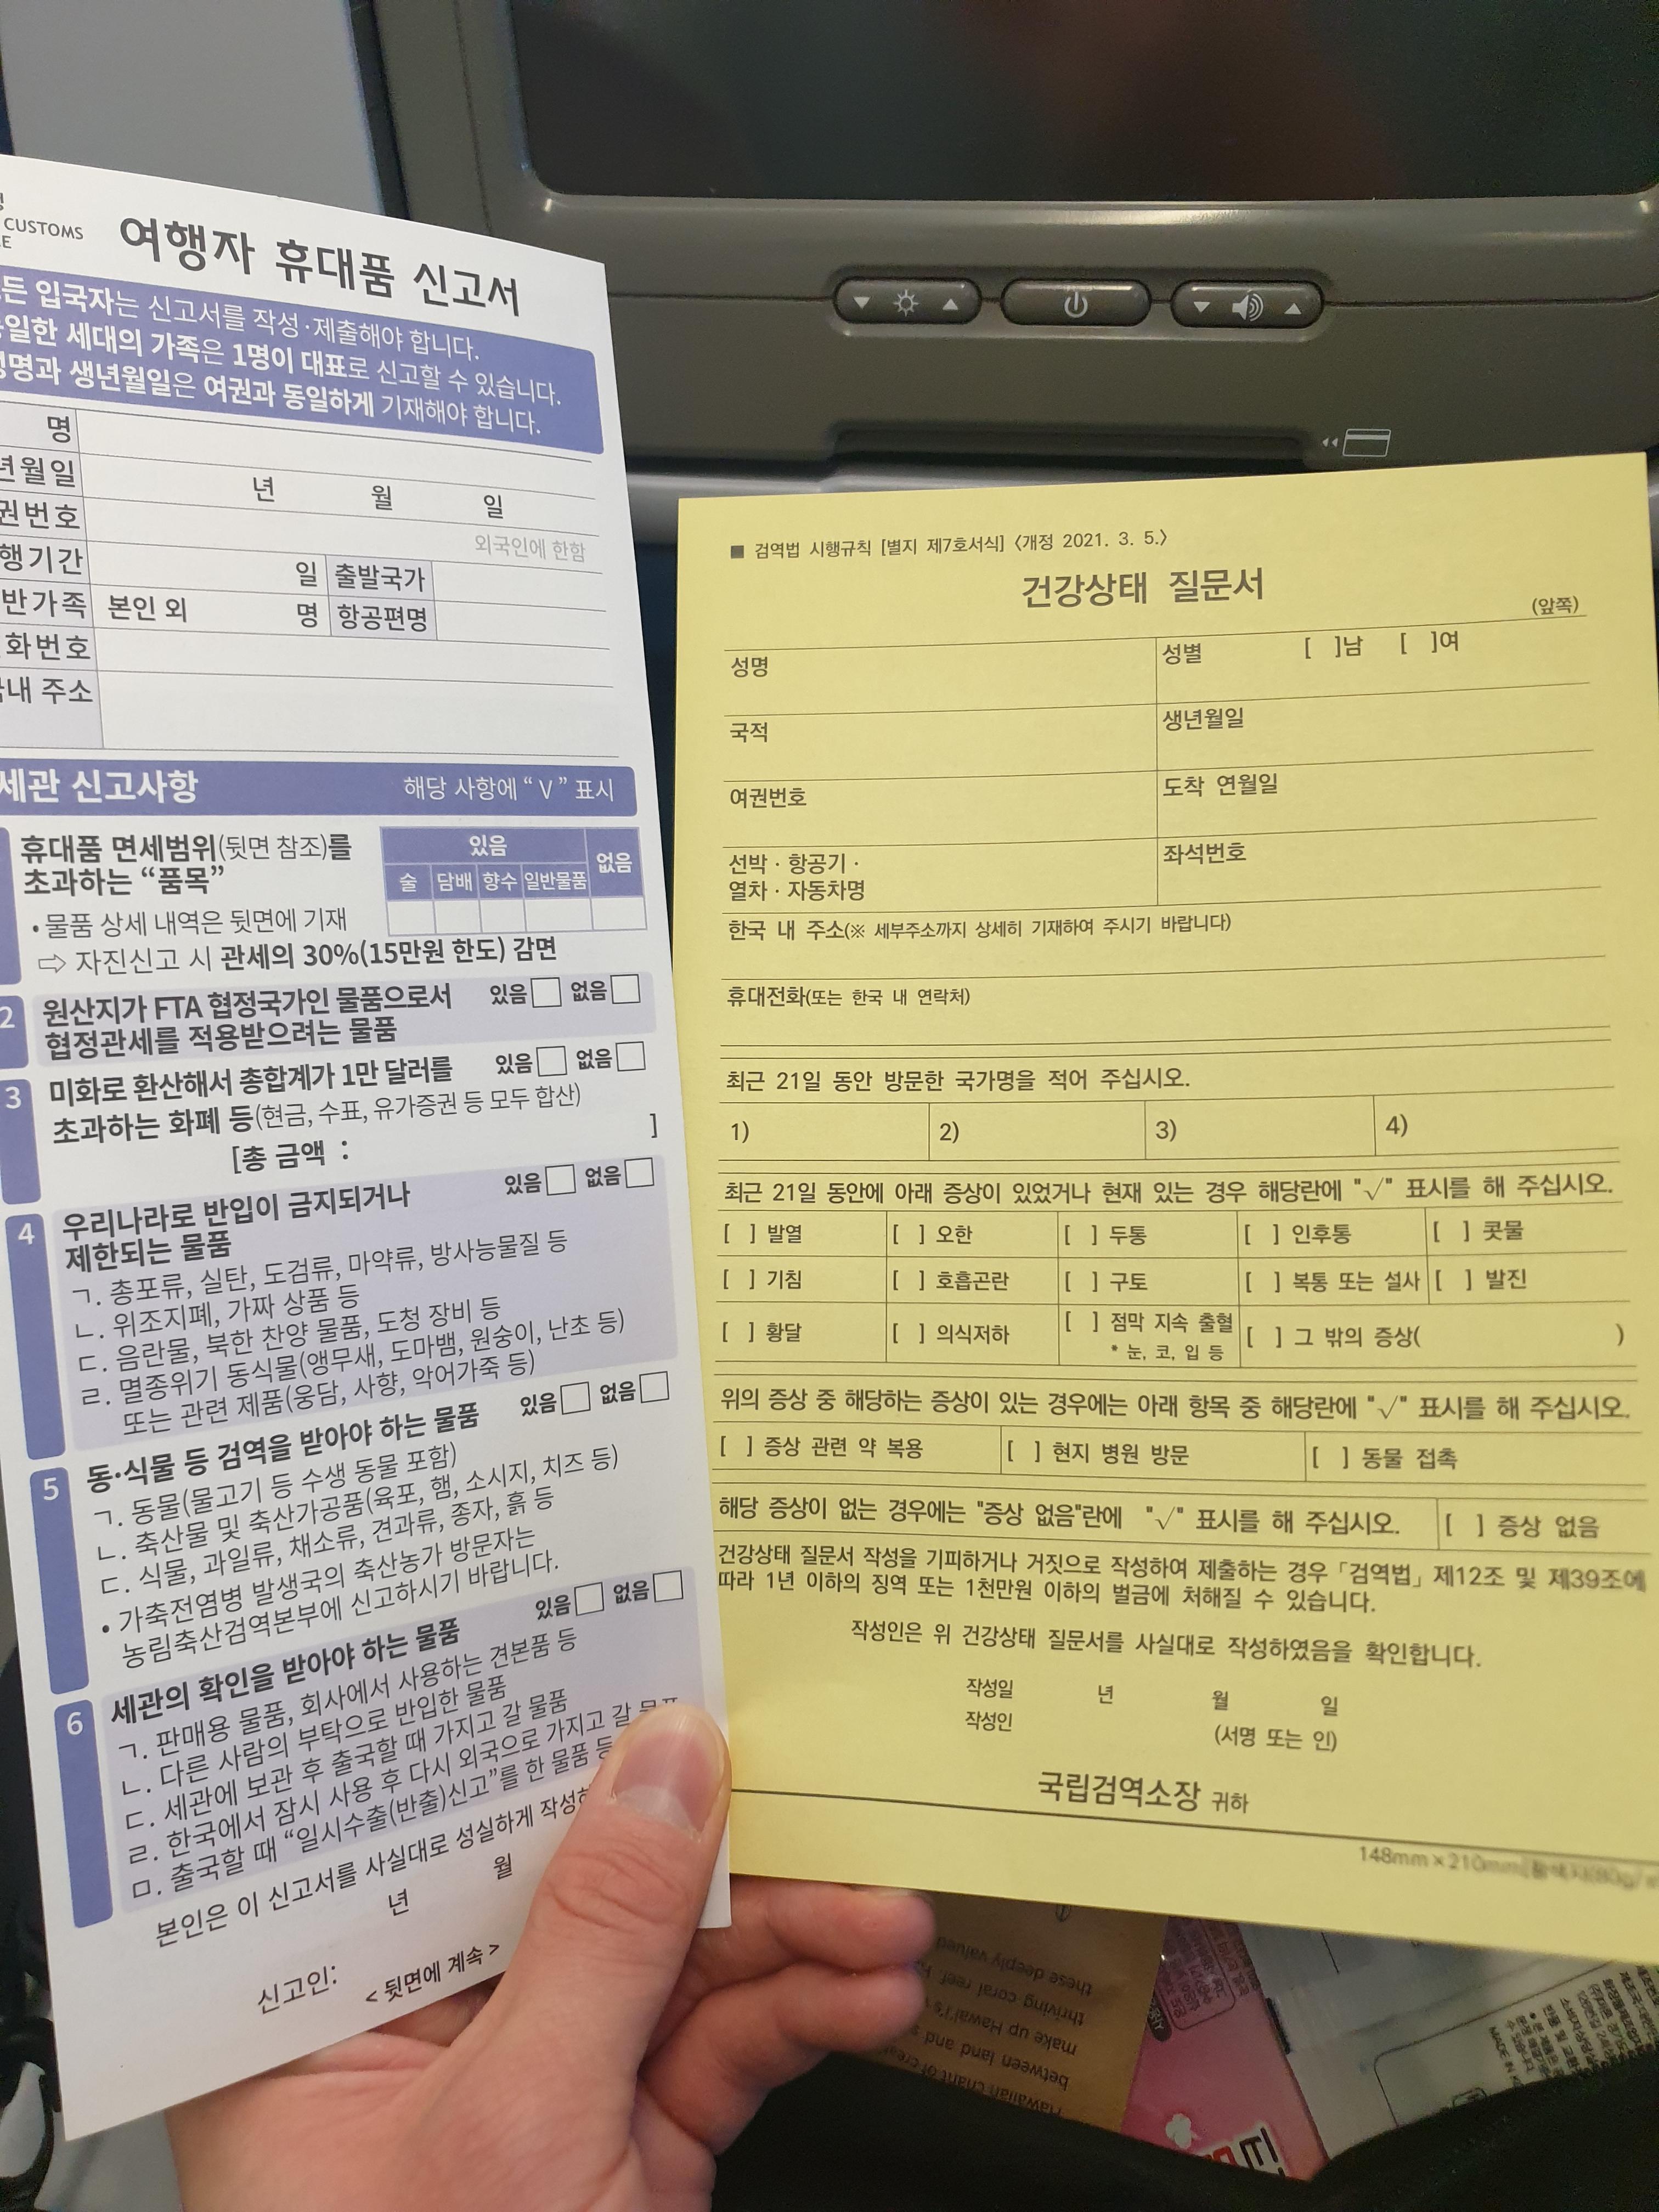 CUSTOMS
여행자 휴대품 신고서
입국자는 신고서를 작성·제출해야 합니다.
세대의 가족은 1명이 대표로 신고할 수 있습니다.
생년월일은 여권과 동일하게 기재해야 합니다.
명
년월일 년 월 일
권번호 외국인에 한함
행기간 일 출발국가
반가족 본인 외 명 항공편명
화번호
내 주소
세관 신고사항 해당 사항에 “ V ” 표시
휴대품 면세범위(뒷면 참조)를
초과하는 “품목”
있음 없음
술 담배 향수 일반물품
• 물품 상세 내역은 뒷면에 기재
⇨ 자진신고 시 관세의 30%(15만원 한도) 감면
2 원산지가 FTA 협정국가인 물품으로서 있음 없음
협정관세를 적용받으려는 물품
3 미화로 환산해서 총합계가 1만 달러를 있음 없음
초과하는 화폐 등(현금, 수표, 유가증권 등 모두 합산)
[총 금액 : ]
4 우리나라로 반입이 금지되거나 있음 없음
제한되는 물품
ㄱ. 총포류, 실탄, 도검류, 마약류, 방사능물질 등
ㄴ. 위조지폐, 가짜 상품 등
ㄷ. 음란물, 북한 찬양 물품, 도청 장비 등
ㄹ. 멸종위기 동식물(앵무새, 도마뱀, 원숭이, 난초 등)
또는 관련 제품(웅담, 사향, 악어가죽 등)
5 동·식물 등 검역을 받아야 하는 물품 있음 없음
ㄱ. 동물(물고기 등 수생 동물 포함)
ㄴ. 축산물 및 축산가공품(육포, 햄, 소시지, 치즈 등)
ㄷ. 식물, 과일류, 채소류, 견과류, 종자, 흙 등
• 가축전염병 발생국의 축산농가 방문자는
농림축산검역본부에 신고하시기 바랍니다.
6 세관의 확인을 받아야 하는 물품 있음 없음
ㄱ. 판매용 물품, 회사에서 사용하는 견본품 등
ㄴ. 다른 사람의 부탁으로 반입한 물품
ㄷ. 세관에 보관 후 출국할 때 가지고 갈 물품
ㄹ. 한국에서 잠시 사용 후 다시 외국으로 가지고 갈
ㅁ. 출국할 때 “일시수출(반출)신고”를 한 물품 등
본인은 이 신고서를 사실대로 성실하게
년 월
신고인:
< 뒷면에 계속 >
■ 검역법 시행규칙 [별지 제7호서식] 〈개정 2021. 3. 5.〉
건강상태 질문서
(앞쪽)
성명 성별 [ ]남 [ ]여
국적 생년월일
여권번호 도착 연월일
선박 · 항공기 · 좌석번호
열차 · 자동차명
한국 내 주소(※ 세부주소까지 상세히 기재하여 주시기 바랍니다)
휴대전화(또는 한국 내 연락처)
최근 21일 동안 방문한 국가명을 적어 주십시오.
1) 2) 3) 4)
최근 21일 동안에 아래 증상이 있었거나 현재 있는 경우 해당란에 "√" 표시를 해 주십시오.
[ ] 발열 [ ] 오한 [ ] 두통 [ ] 인후통 [ ] 콧물
[ ] 기침 [ ] 호흡곤란 [ ] 구토 [ ] 복통 또는 설사 [ ] 발진
[ ] 황달 [ ] 의식저하 [ ] 점막 지속 출혈 [ ] 그 밖의 증상( )
* 눈, 코, 입 등
위의 증상 중 해당하는 증상이 있는 경우에는 아래 항목 중 해당란에 "√" 표시를 해 주십시오.
[ ] 증상 관련 약 복용 [ ] 현지 병원 방문 [ ] 동물 접촉
해당 증상이 없는 경우에는 "증상 없음"란에 "√" 표시를 해 주십시오. [ ] 증상 없음
건강상태 질문서 작성을 기피하거나 거짓으로 작성하여 제출하는 경우 「검역법」 제12조 및 제39조에
따라 1년 이하의 징역 또는 1천만원 이하의 벌금에 처해질 수 있습니다.
작성인은 위 건강상태 질문서를 사실대로 작성하였음을 확인합니다.
작성일 년 월 일
작성인 (서명 또는 인)
국립검역소장 귀하
148mm×210mm
these deeply valued
thriving coral reef.
make up Hawaiʻi's
between land and
Hawaiian chant of